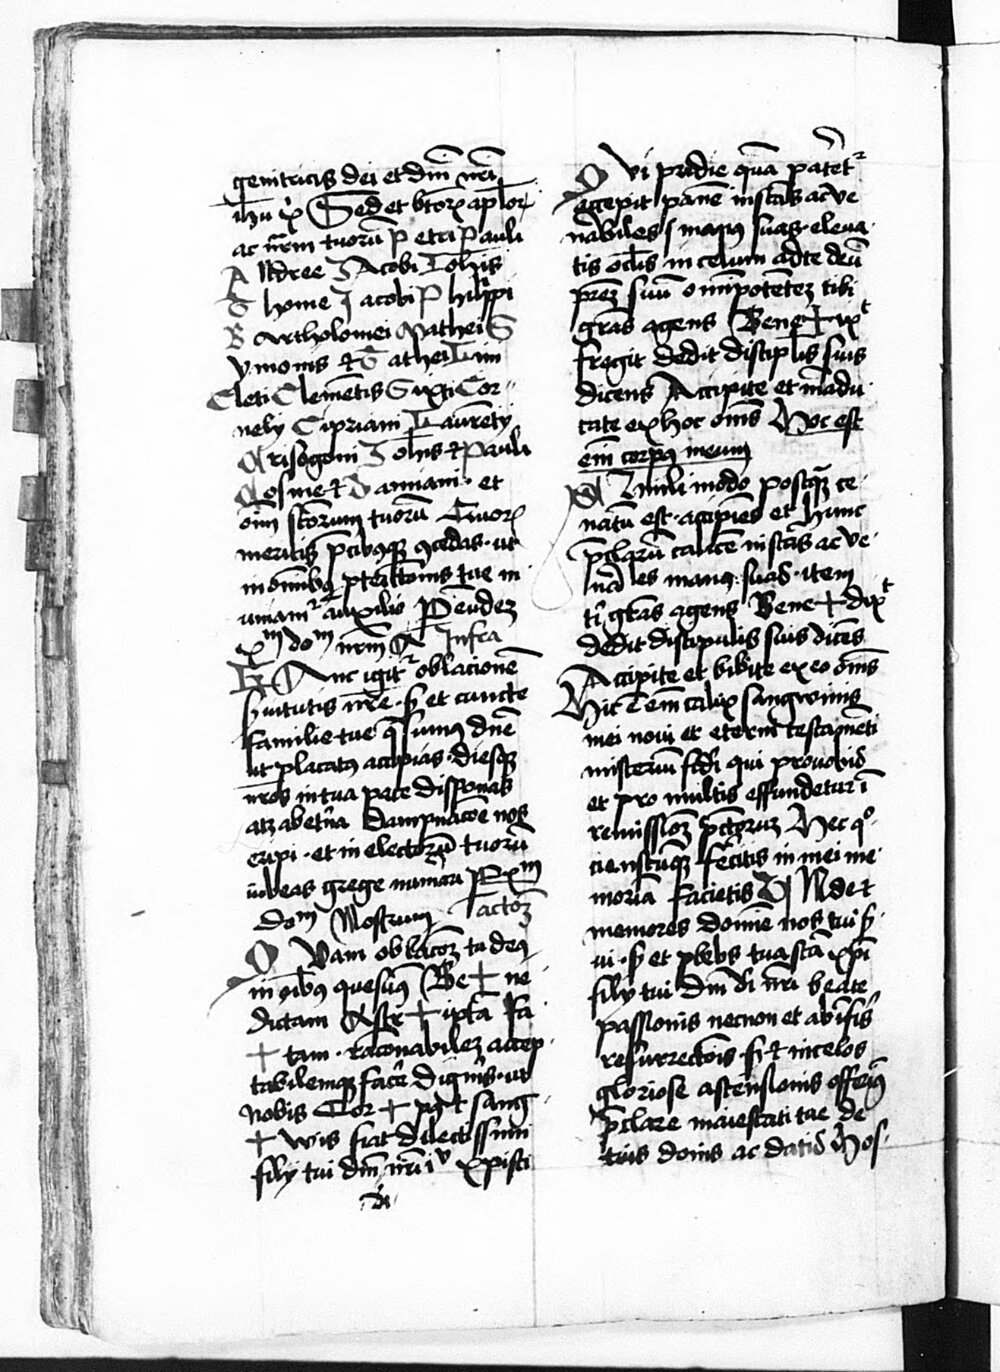 genitricis dei et dn̄i nr̄i
ih̄u xp̄i Sed et btōꝝ apl̄oꝝ
ac mr̄m tuoꝝ P etri Pauli
A ndree Jacobi Ioh̄is
T home Jacobi P hilippi
B artholomei Mathei S
ymonis et T athei Lini
Cleti Clemētis Sixti Cor
nely Cipriani Laurēty
Crisogoni Ioh̄is et Pauli
Cosme et Damiani et
oīm sc̄torum tuorū Quoꝝ
meritis p̄cibusqꝫ ꝯcedas ut
in om̄ibꝰ ꝓtectōnis tue m
uniamʳ auxilio Per eūdeꝫ
xᵐ doᵐ nr̄m A Infra
H Anc igitʳ oblacionē
s̄uitutis nr̄e sꝫ et cuncte
familie tue q̄sumus dn̄e
ut placatꝰ accipias diesqꝫ
nr̄os in tua pace disponas
atqꝫ ab et̄na dampnacōe nos
eripi et in electoꝝ tuorū
iubeas grege numerari P xᵐ
doᵐ Nostrum
Q Uam oblacōꝫ tu deꝰ
in oībꝰ quesumꝰ Be ✝ ne
dictam Asc̄r ✝ iptā Ra
✝ tam racōnabileꝫ accep
tabilemqꝫ facē digneris ut
nobis Cor ✝ pꝰ et sang
✝ wis fiat dilectissimi
fily tui dn̄i nr̄i iᵛ xpisti
Q Vi pridie quā pateretʳ
accepit panē in sctās ac ve
nabiles manꝰ suas eleua
tis oclīs in celum ad te deū
preꝫ suū om̄ipotēteꝫ tibi
grās agens Bene ✝ ixᵗ
fregit dedit discipl̄is suis
dicens Accipite et mādu
cate ex hoc om̄s Hoc est
em̄ corpꝰ meum
S Imili modo postqꝫ ce
natū est accipiēs et hunc
p̄clarū calicē in sctās ac ve
nā les manꝰ suas item
t̄i grās agens Bene ✝ dixᵗ
dedit discipulis suis dicēs
Accipite et bibite ex eo om̄s
Hic ē em̄ calix sangwinis
mei noui et eterni testamēti
misteriū fidei qui pro uobis
et pro multis effundetur ī
remissioꝫ pc̄toruꝫ Hec qᵒ
ciensscūqꝫ fēcitis in mei me
moriā facietis U Nde et
memores domie nos tui s̄
ui sꝫ et plebs tua sctā xp̄i
fily tui dn̄i di nr̄i beate
passionis necnon et ab īferis
resurrectōis sꝫ et in celos
gloriose ascēnsionis offerimꝰ
p̄clare maiestati tue de
tuis donis ac datis Hos